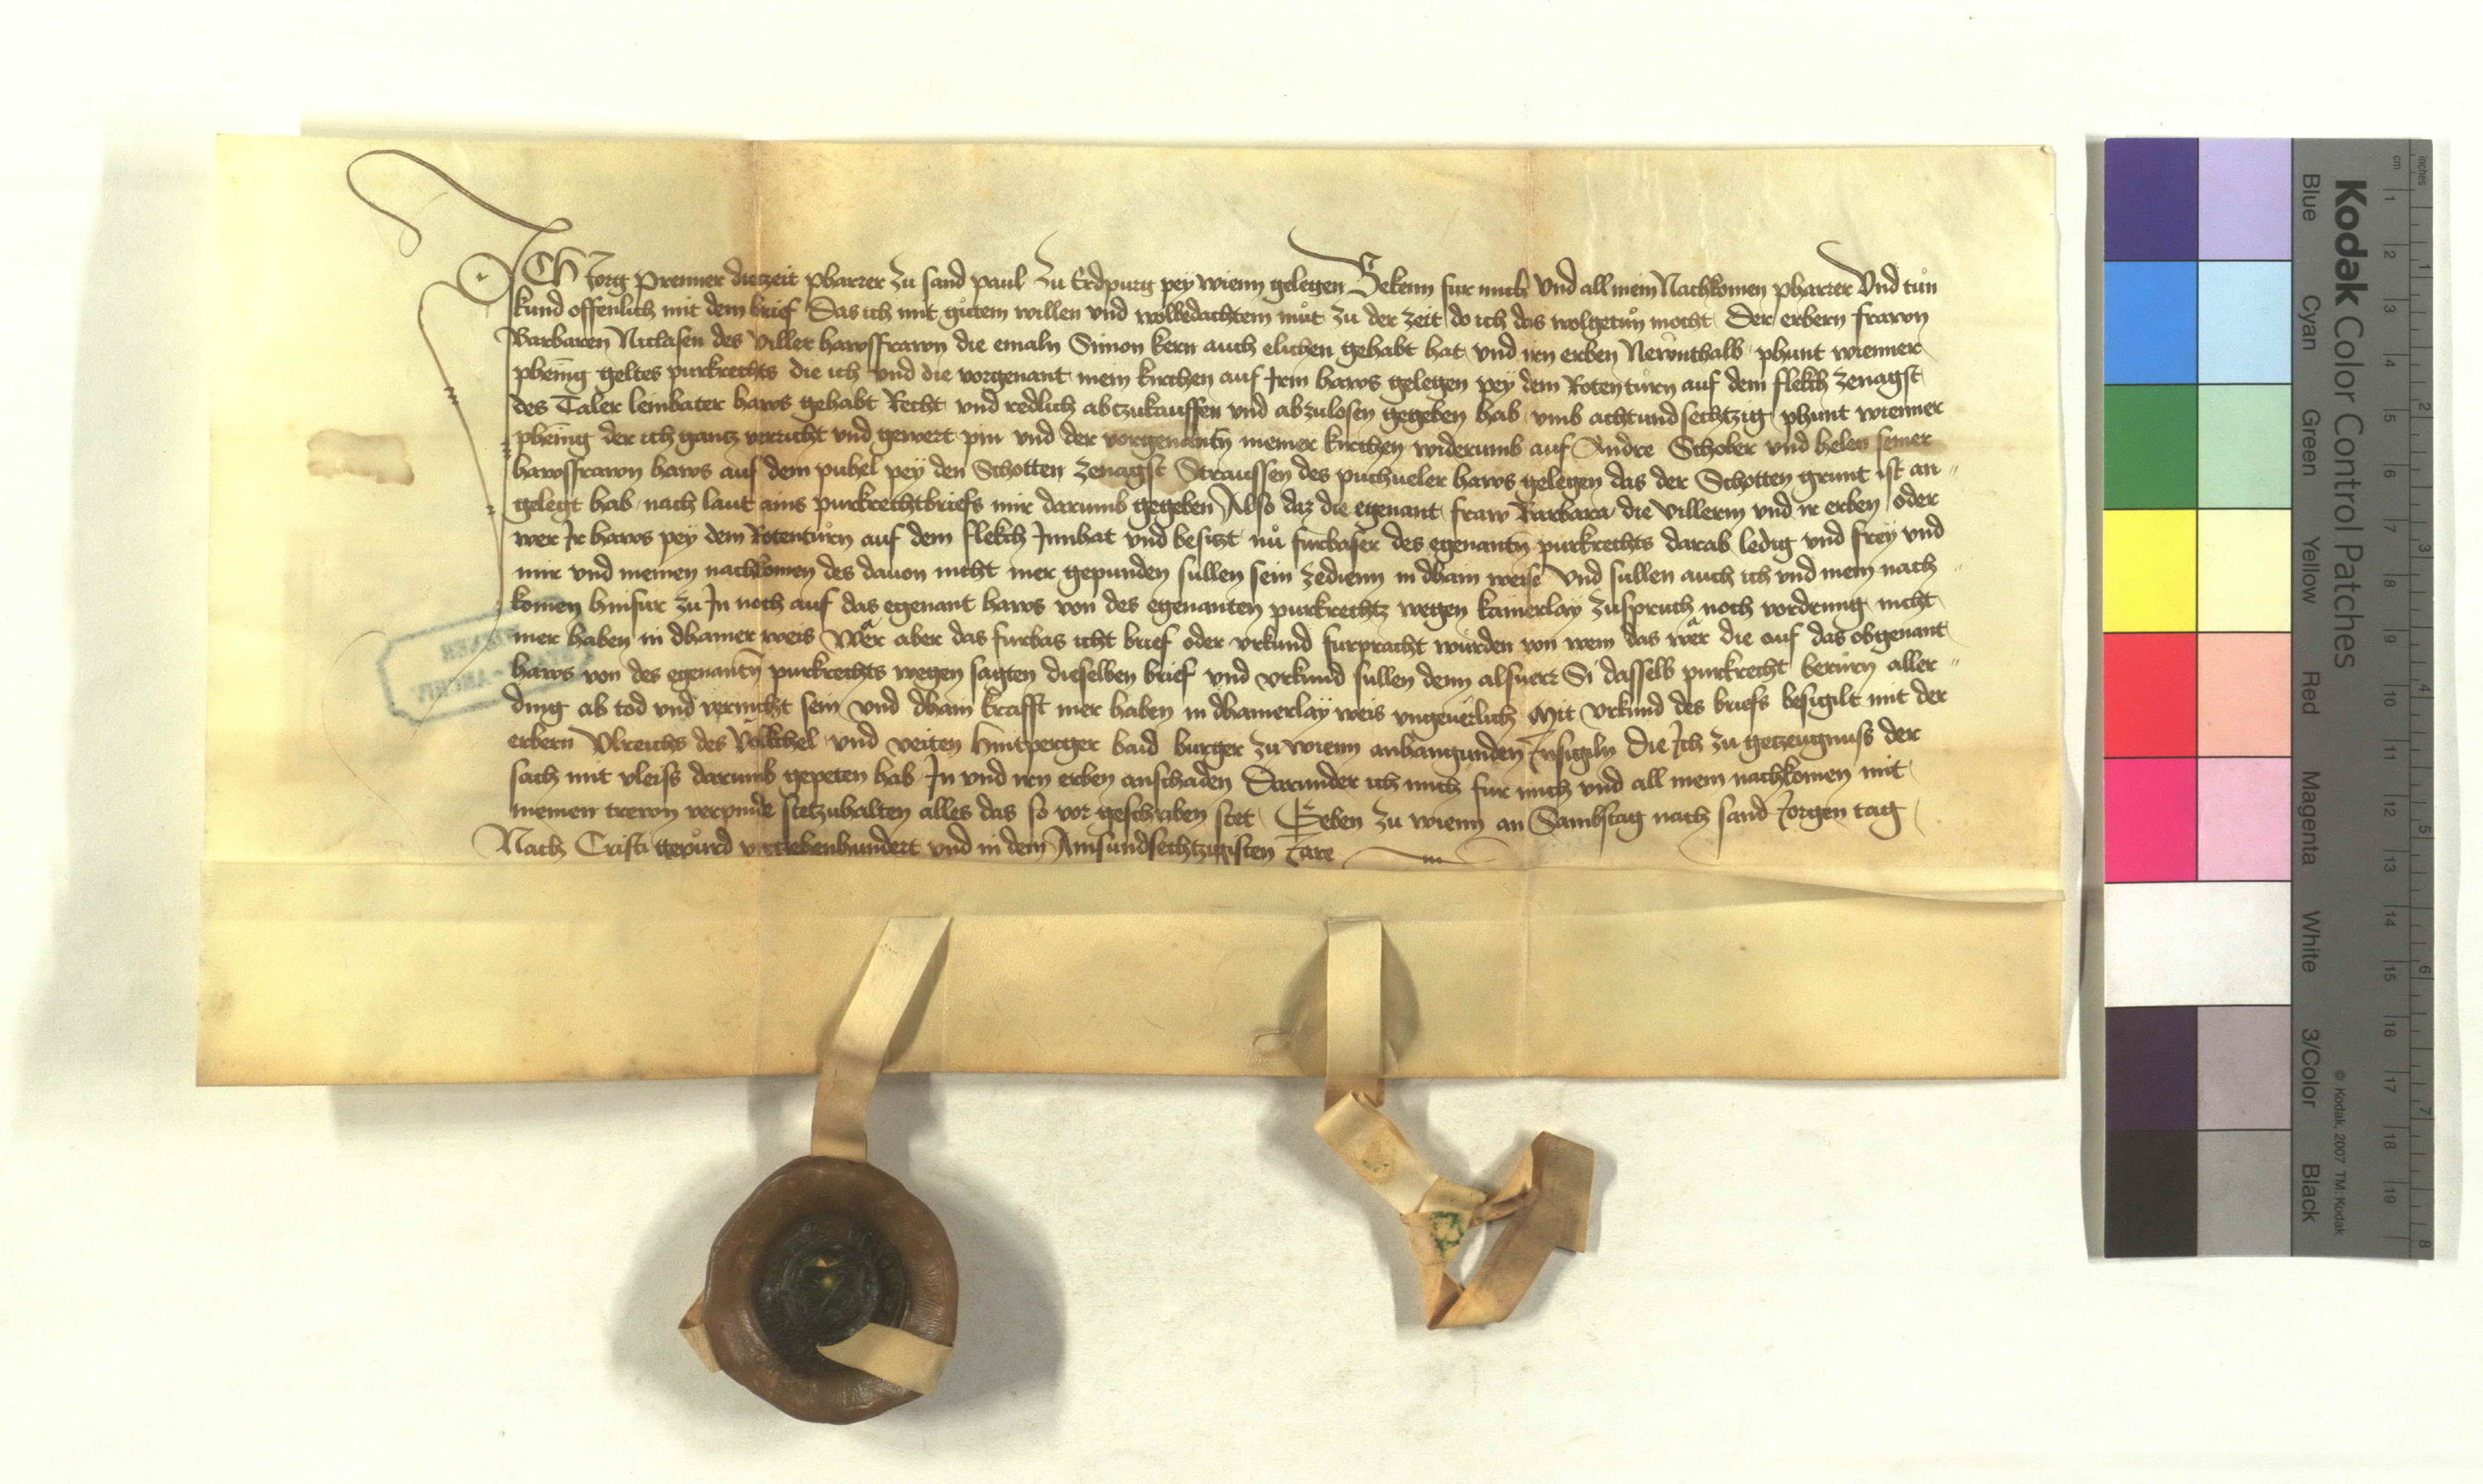 ICh Jorg Prenner diezeit pharrer zu sand paul zu Erdpurg pey wienn gelegen Bekenn fur mich Vnd all mein Nachkomen pharrer Vnd tůn
kund offenlich mit dem brief Das ich mit gůtem willen vnd wolbedachtem můt zu der zeit do ich das wolgetůn mocht Der erbern frawn
Barbaren Niclasen des Viller hawsfrawn die emaln Simon kern auch elichen gehabt hat vnd irn erben Newnthalb phunt wienner
phenig geltes purkrechts die ich vnd die vorgenant mein kirchen auf Jrm haws gelegen pey dem Rotenturn auf dem flekch zenagst
des Taler leinbater haws gehabt Recht vnd redlich abczukauffen vnd abzulosen gegeben hab vmb achtundsechtzig phunt wienner
phenig der ich gantz verricht vnd gewert pin vnd der vorgenantn meiner kirchen widerumb auf Andre Schober vnd helen seiner
hawsfrawn haws auf dem puhel pey den Schotten zenagst Straussen des puchueler haws gelegen das der Schotten grunt ist an
gelegt hab nach laut ains purkrechtbriefs mir darumb gegeben Also daz die egenant fraw Barbara die Villerin vnd ir erben oder
wer Jr haws pey dem Rotenturn auf dem flekch Jnnhat vnd besiczt nů furbaser des egenantn purkrechts darab ledig vnd frey vnd
mir vnd meinen nachkomen des dauon nicht mer gepunden sullen sein zedienn in dhain weise Vnd sullen auch ich vnd mein nach
komen hinfur zu Jn noch auf das egenant haws von des egenanten purkrechtz wegen kainerlay zuspruch noch vordrung nicht
mer haben in dhainer weis Wer aber das furbas icht brief oder vrkund furpracht wurden von wem das wer die auf das obgenant
haws von des egenantn purkrechts wegen sagten dieselben brief vnd vrkund sullen denn alsuerr Si dasselb purkrecht berurn aller
ding ab tod vnd vernicht sein vnd dhain krafft mer haben in dhainerlay weis vngeuerlich Mit vrkund des briefs besigilt mit der
erbern Vlreichs des Volkchel vnd veiten Hintperger baid burger zu wienn anhangunden Jnsigiln Die Jch zu getzeugnuss der
sach mit vleiss darumb gepeten hab Jn vnd irn erben anschaden Darunder ich mich fur mich vnd all mein nachkomen mit
meinen trewn verpinde stetzuhalten alles das so vor geschriben stet Geben zu wienn an Sambstag nach sand Jorgen tag
Nach Cristi gepurd vierzehenhundert vnd in dem Ainsundsechtzigisten Jare
Kodak Color Control Patches
Blue Cyan Green Yellow Red Magenta White 3/Color Black
© Kodak, 2007 TM: Kodak
inches 1 2 3 4 5 6 7 8
cm 1 2 3 4 5 6 7 8 9 10 11 12 13 14 15 16 17 18 19